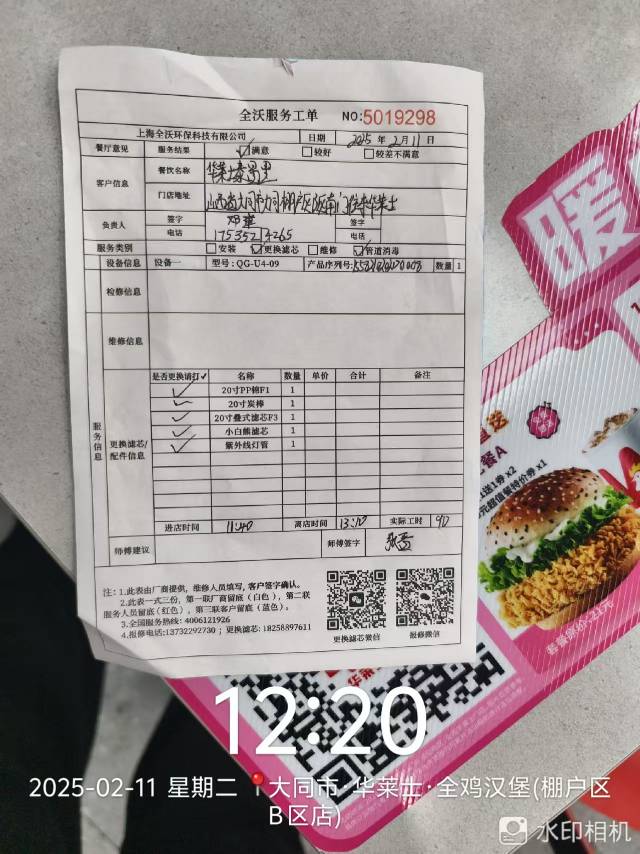 全沃服务工单 NO:5019298
上海全沃环保科技有限公司 日期 2025年2月11日
餐厅意见 服务结果 满意 较好 较差不满意
客户信息 餐饮名称 华莱士
门店地址 山西省大同市
负责人 签字 签字
电话 17535214265 电话
服务类别 安装 更换滤芯 维修 管道消毒
设备信息 设备一 型号:QG-U4-09 产品序列号: 数量 1
检修信息
维修信息
服务信息
更换滤芯/配件信息
是否更换请打✓ 名称 数量 单价 合计 备注
✓ 20寸PP棉F1 1
✓ 20寸炭棒 1
✓ 20寸叠式滤芯F3 1
✓ 小白熊滤芯 1
✓ 紫外线灯管 1
进店时间 11:40 离店时间 13:10 实际工时 90
师傅建议 师傅签字
注:1.此表由厂商提供,维修人员填写,客户签字确认。
2.此表一式三份,第一联厂商留底(白色),第二联
服务人员留底(红色),第三联客户留底(蓝色)。
3.全国服务热线:4006121926
4.报修电话:13732292730;更换滤芯:18258897611
更换滤芯微信 报修微信
暖
套餐A
套餐原价-21元
12:20
2025-02-11 星期二 大同市·华莱士·全鸡汉堡(棚户区
B区店)
水印相机